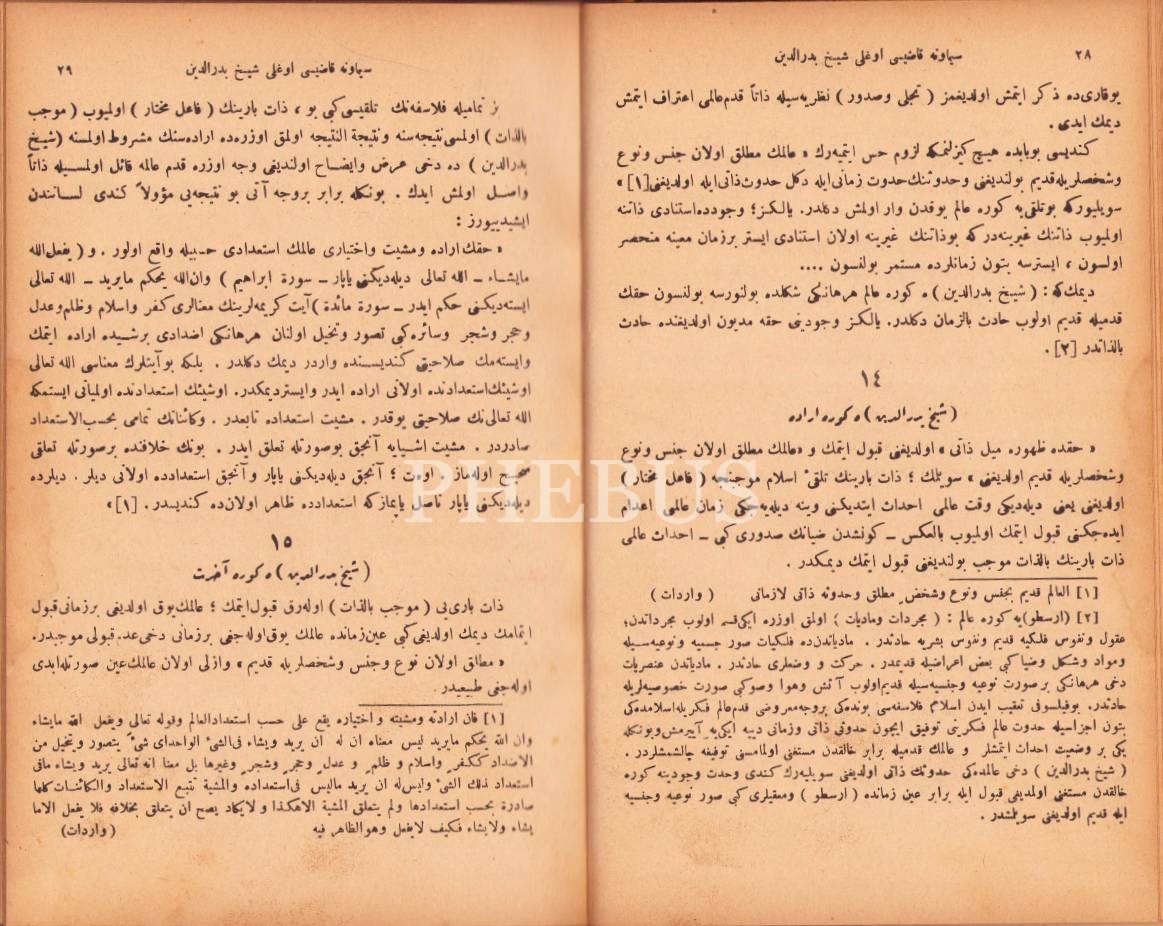 ٢٨ سیماونه قاضیسی اوغلی شیخ بدرالدین
یوقاری‌ده ذکر ایتمش اولدیغمز ( تجلی وصدور ) نظریه‌سیله ذاتاً قدم‌عالمی اعتراف ایتمش
دیمك ایدی .
کندیسی بوبابده هیچ کیزلنمکه لزوم حس ایتمیه‌رك « عالمك مطلق اولان جنس ونوع
وشخصلریله‌قدیم بولندیغنی وحدوثنك‌حدوث زمانی‌ایله دکل حدوث‌ذاتی‌ایله اولدیغنی[١]»
سویلیورکه بوتلقی‌یه کوره عالم یوقدن وار اولمش دکلدر. یالکز؛ وجودده‌استنادی ذاتنه
اولمیوب ذاتنك غیرینه‌درکه بوذاتنك غیرینه اولان استنادی ایستر برزمان معینه منحصر
اولسون ، ایسترسه بتون زمانلرده مستمر بولنسون ....
دیمك‌که : ( شیخ بدرالدین )ه کوره عالم هرهانکی شکلده بولنورسه بولنسون حقك
قدمیله قدیم اولوب حادث بالزمان دکلدر. یالکز وجودینی حقه مدیون اولدیغنده حادث
بالذاتدر [٢] .
١٤
( شیخ بدرالدین )ه کوره اراده
« حقده ظهوره میل ذاتی » اولدیغنی قبول ایتمك و «عالمك مطلق اولان جنس ونوع
وشخصلریله قدیم اولدیغنی » سویلمك ؛ ذات بارینك تلقیٔ اسلام موجبنجه ( فاعل مختار )
اولدیغنی یعنی دیله‌دیکی وقت عالمی احداث ایتدیکنی وینه دیله‌یه‌جکی زمان عالمی اعدام
ایده‌جکنی قبول ایتمك اولمیوب بالعکس ـ کونشدن ضیانك صدوری کبی ـ احداث عالمی
ذات بارینك بالذات موجب بولندیغنی قبول ایتمك دیمکدر .
[١] العالم قدیم بجنس ونوع وشخص مطلق وحدوثه ذاتی لازمانی ( واردات )
[٢] (ارسطو)یه کوره عالم : ( مجردات ومادیات ) اولمق اوزره ایکی‌قسم اولوب مجرداتدن؛
عقول ونفوس فلکیه قدیم ونفوس بشریه حادثدر . مادیاتدن‌ده فلکیات صور جسمیه ونوعیه‌سیله
ومواد وشکل وضیا کبی بعض اعراضیله قدیمدر . حرکت و وضعلری حادثدر . مادیاتدن عنصریات
دخی هرهانکی برصورت نوعیه وجنسیه‌سیله قدیم‌اولوب آتش وهوا وصوکبی صورت خصوصیه‌لریله
حادثدر. بوفیلسوفی تعقیب ایدن اسلام فلاسفه‌سی بونده‌کی بروجه‌معروضی قدم‌عالم فکریله‌اسلامده‌کی
بتون اجزاسیله حدوث عالم فکرینی توفیق ایچون حدوثی ذاتی وزمانی دییه ایکی‌یه آییرمش‌وبونکله
یکی بر وضعیت احداث ایتمشلر و عالمك قدمیله برابر خالقدن مستغنی اولمامسنی توفیقه چالشمشلردر .
( شیخ بدرالدین ) دخی عالمده‌کی حدوثك ذاتی اولدیغنی سویلیه‌رك کندی وحدت وجودینه کوره
خالقدن مستغنی اولمدیغنی قبول ایله برابر عین زمانده ( ارسطو ) ومعقبلری کبی صور نوعیه وجنسیه
ایله قدیم اولدیغنی سویلمشدر .
سیماونه قاضیسی اوغلی شیخ بدرالدین ٢٩
تمامیله فلاسفه‌نك تلقیسی کبی بو ، ذات بارینك ( فاعل مختار ) اولمیوب ( موجب
بالذات ) اولمسی‌نتیجه‌سنه ونتیجة النتیجه اولمق اوزره‌ده اراده‌سنك مشروط اولمسنه (شیخ
بدرالدین ) ده دخی عرض وایضاح اولندیغی وجه اوزره قدم عالمه قائل اولمسیله ذاتاً
واصل اولمش ایدك . بونکله برابر بروجه آتی بو نتیجه‌یی مؤولاً کندی لساندن
ایشیدییورز :
« حقك اراده ومشیت واختیاری عالمك استعدادی حسبیله واقع اولور . و ( یفعل‌الله
مایشاء ـ الله تعالی دیله‌دیکنی یاپار ـ سورة ابراهیم ) وان‌الله یحکم مایرید ـ الله تعالی
ایسته‌دیکنی حکم ایدر ـ سورة مائدة )آیت کریمه‌لرینك معنالری کفر واسلام وظلم وعدل
وحجر وشجر وسائره‌کبی تصور وتخیل اولنان هرهانکی اضدادی برشیده اراده ایتمك
وایسته‌مك صلاحیتی کندیسنده واردر دیمك دکلدر . بلکه بوآیتلرك معناسی الله تعالی
اوشیئك‌استعدادنده اولانی اراده ایدر وایستردیمکدر. اوشیئك استعدادنده اولمیانی ایستمکه
الله تعالی‌نك صلاحیتی یوقدر . مشیت استعداده تابعدر . وکائناتك تمامی بحسب‌الاستعداد
صادردر . مشیت اشیایه آنجق بوصورتله تعلق ایدر . بونك خلافنده برصورتله تعلقی
صحیح اوله‌ماز . اوت ؛ آنجق دیله‌دیکنی یاپار و آنجق استعدادده اولانی دیلر . دیلرده
دیله‌دیکنی یاپار ناصل یاپمازکه استعدادده ظاهر اولان‌ده کندیسدر . [١] »
١٥
( شیخ بدرالدین )ه کوره آخرت
ذات باری‌یی ( موجب بالذات ) اوله‌رق قبول‌ایتمك ؛ عالمك‌یوق اولدیغی برزمانی‌قبول
ایتمامك دیمك اولدیغی‌کبی عین‌زمانده عالمك یوق‌اوله‌جغی برزمانی دخی‌عدم قبولی موجبدر.
« مطلق اولان نوع وجنس وشخصلریله قدیم » وازلی اولان عالمك‌عین صورتله‌ابدی
اوله‌جغی طبیعیدر .
[١] فان ارادته ومشیته و اختیاره یقع علی حسب استعدادالعالم وقوله تعالی ویفعل الله مایشاء
وان الله یحکم مایرید لیس معناه ان له ان یرید ویشاء فی‌الشیٔ الواحدای شیٔ یتصور ویتخیل من
الاضداد ککفر واسلام و ظلم و عدل وحجر وشجر وغیرها بل معنا انه تعالی یرید ویشاء مافی
استعداد ذلك الشیٔ ولیس‌له ان یرید مالیس فی‌استعداده والمشیة تتبع الاستعداد والکائنات کلها
صادرة بحسب استعدادها ولم یتعلق المشیة الاهکذا و لایکاد یصح ان یتعلق بخلافه فلا یفعل الاما
یشاء ولایشاء فکیف لایفعل وهوالظاهر فیه ( واردات )
PHEBUS